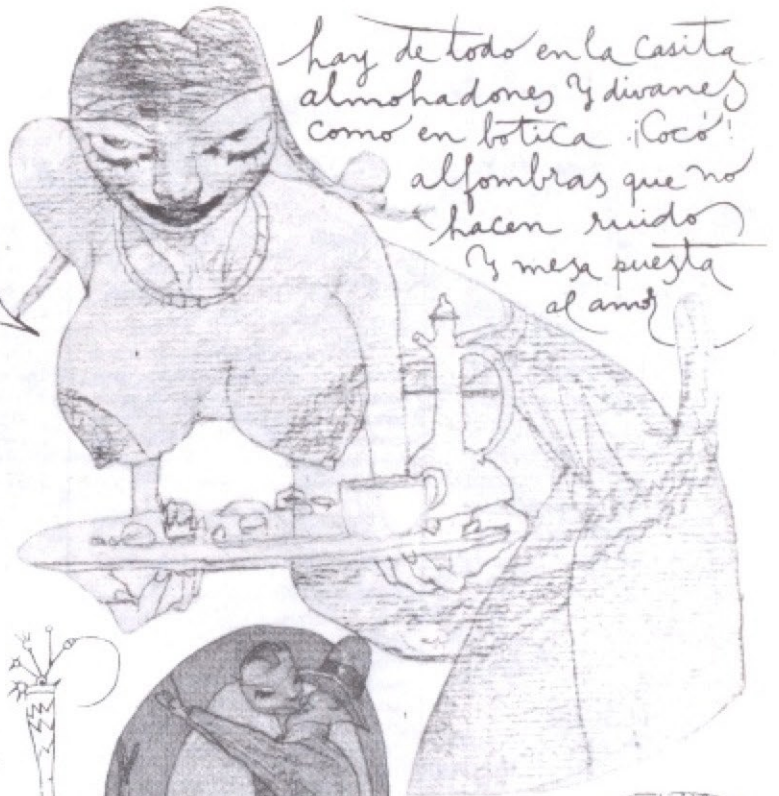 hay de todo en la casita
almohadones y divanes
como en botica ¡Cocó!
alfombras que no
hacen ruido
y mesa puesta
al amor